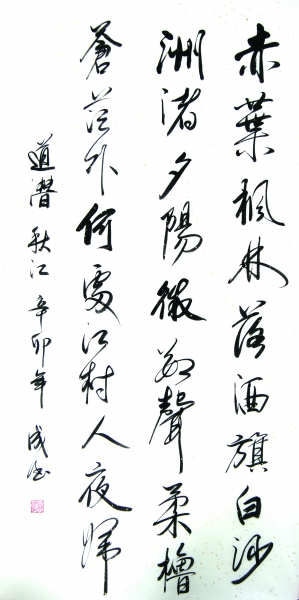 赤葉楓林落酒旗白沙
洲渚夕陽微數聲柔櫓
蒼茫外何處江村人夜歸
道潛 秋江 辛卯年 成